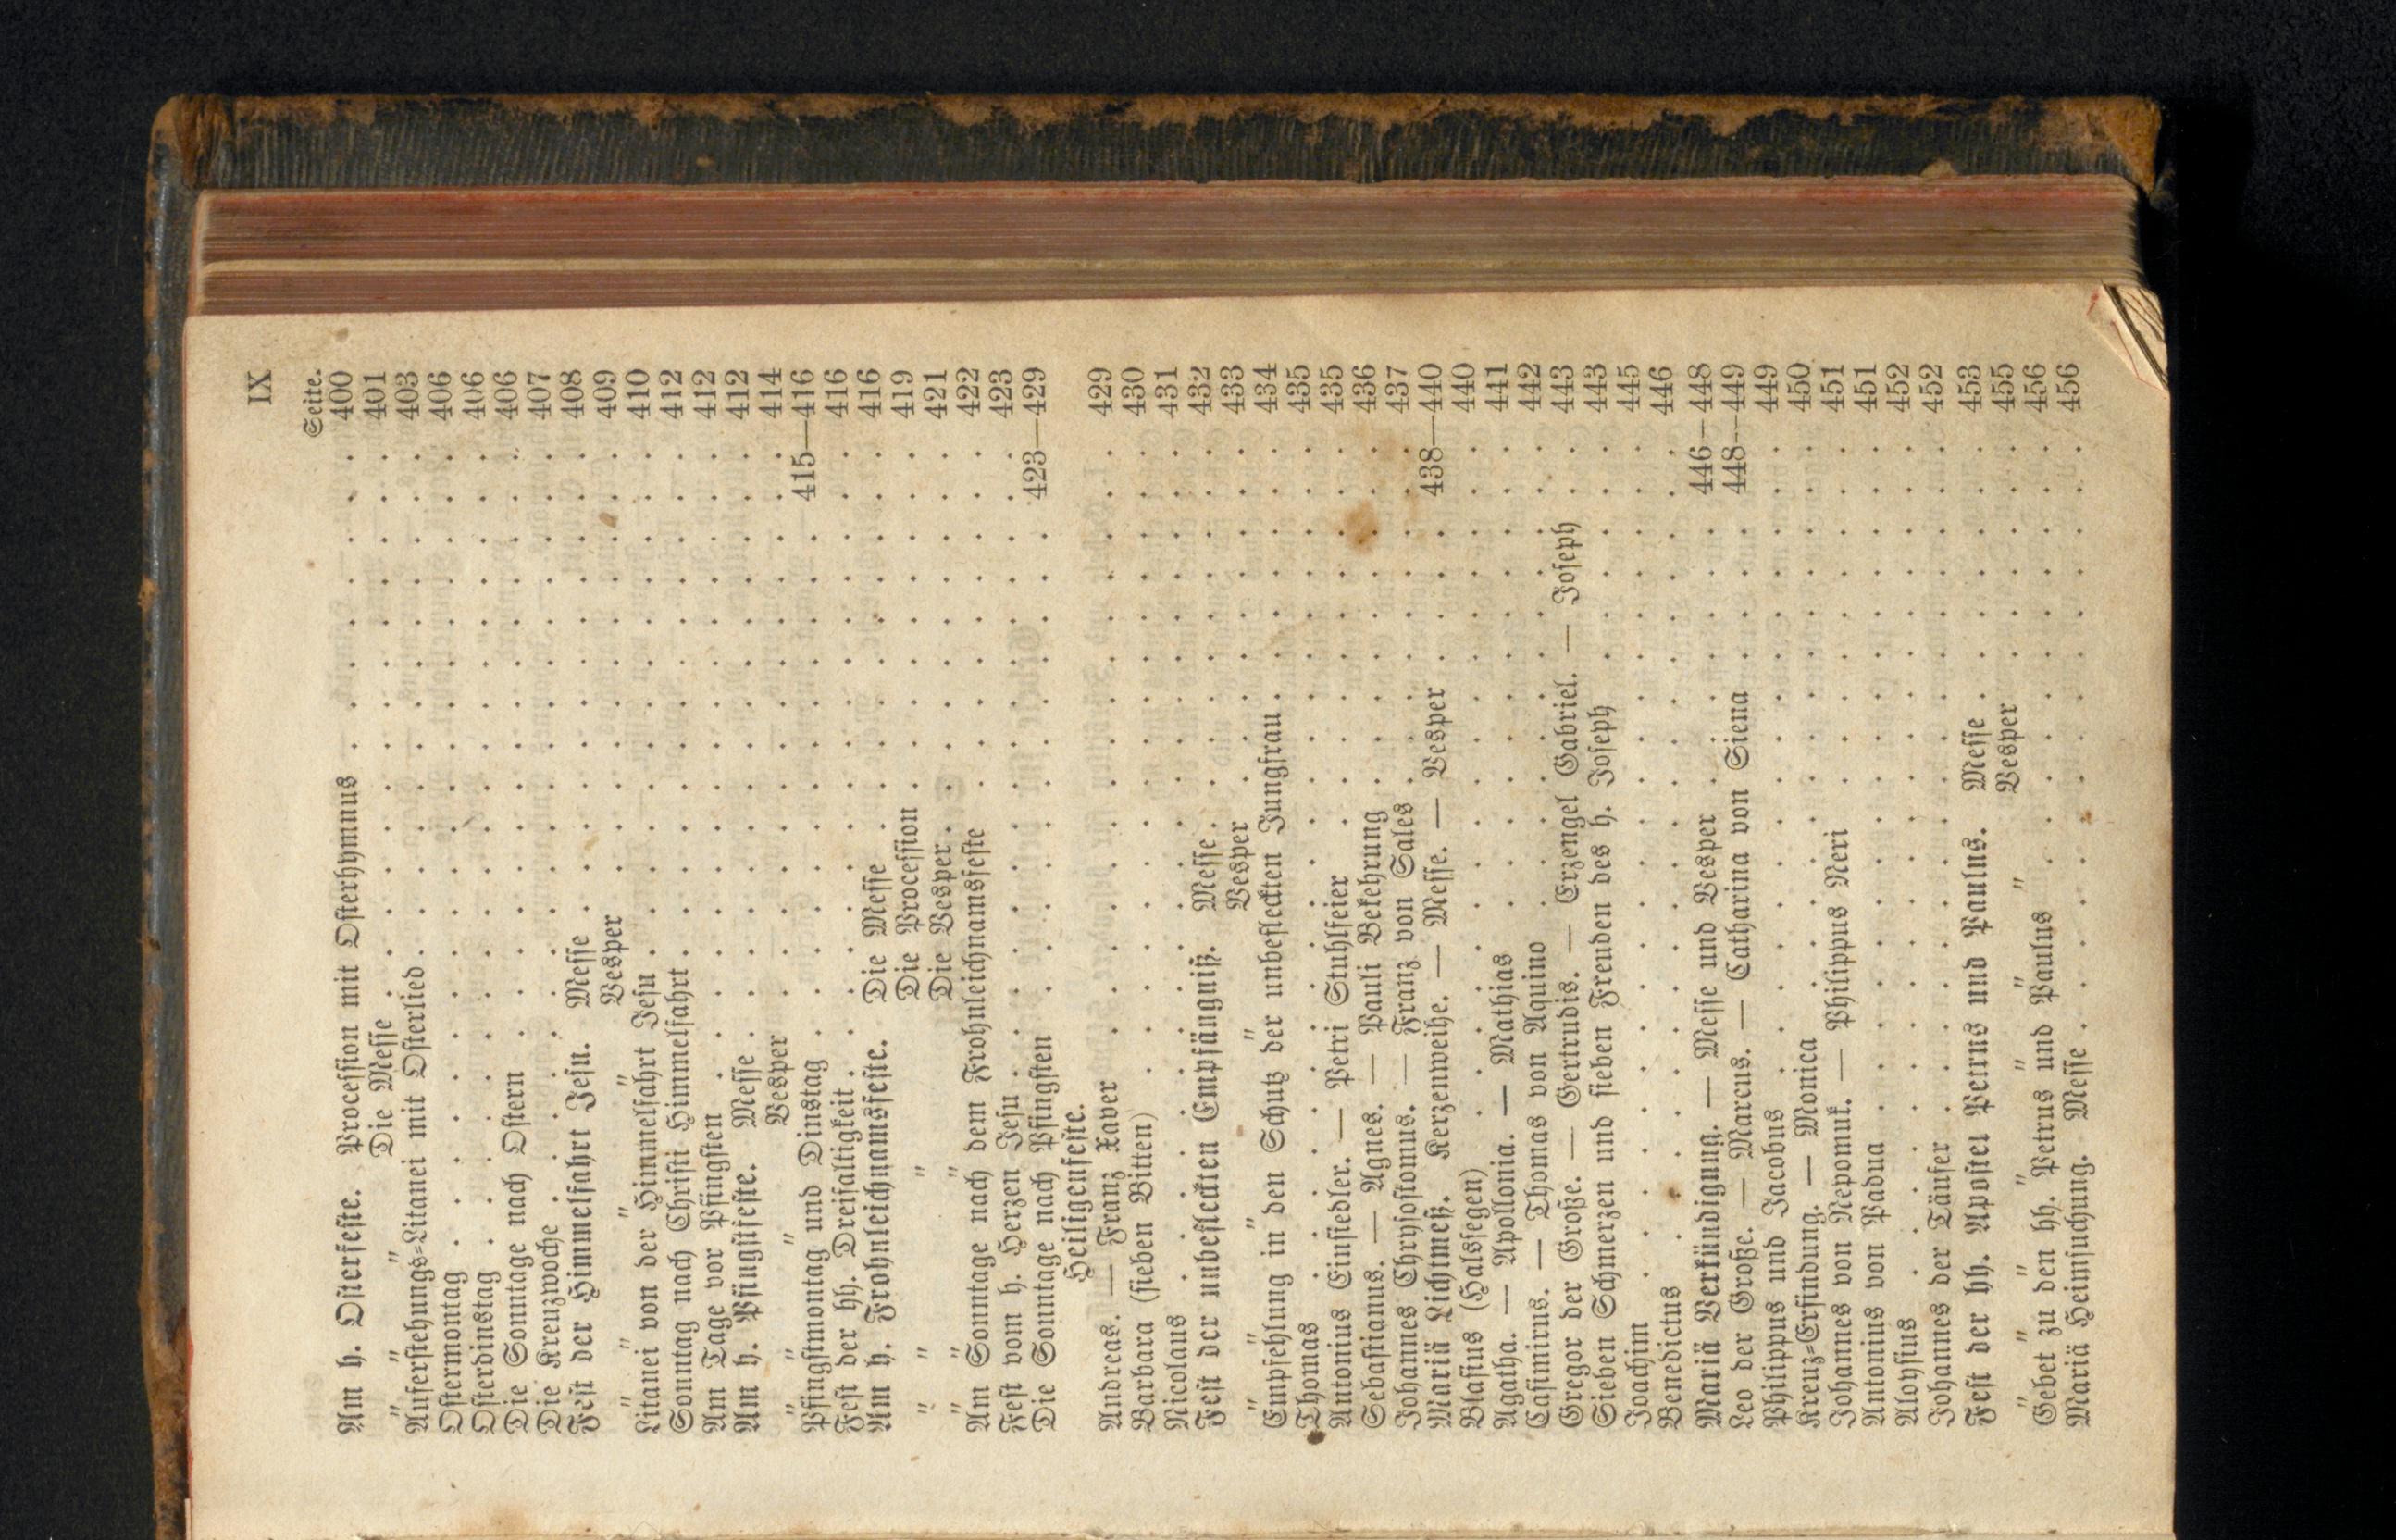 IX
Seite.
Am h. Osterfeste. Procession mit Osterhymnus . . . . . . . . 400
" " Die Messe . . . . . . . . . . . . . . 401
Auferstehungs-Litanei mit Osterlied . . . . . . . . . . . . . 403
Ostermontag . . . . . . . . . . . . . . . . . . . . 406
Osterdinstag . . . . . . . . . . . . . . . . . . . . 406
Die Sonntage nach Ostern . . . . . . . . . . . . . . . 406
Die Kreuzwoche . . . . . . . . . . . . . . . . . . 407
Fest der Himmelfahrt Jesu. Messe . . . . . . . . . . . . 408
" " " Vesper . . . . . . . . . . . . 409
Litanei von der Himmelfahrt Jesu . . . . . . . . . . . . . 410
Sonntag nach Christi Himmelfahrt . . . . . . . . . . . . . 412
Am Tage vor Pfingsten . . . . . . . . . . . . . . . . 412
Am h. Pfingstfeste. Messe . . . . . . . . . . . . . . . 412
" " Vesper . . . . . . . . . . . . . . . 414
Pfingstmontag und Dinstag . . . . . . . . . . . . . 415—416
Fest der hh. Dreifaltigkeit . . . . . . . . . . . . . . . . 416
Am h. Frohnleichnamsfeste. Die Messe . . . . . . . . . . . 416
" " " Die Procession . . . . . . . . . 419
" " " Die Vesper . . . . . . . . . . 421
Am Sonntage nach dem Frohnleichnamsfeste . . . . . . . . . 422
Fest vom h. Herzen Jesu . . . . . . . . . . . . . . . 423
Die Sonntage nach Pfingsten . . . . . . . . . . . . 423—429
Heiligenfeste.
Andreas. — Franz Xaver . . . . . . . . . . . . . . . 429
Barbara (sieben Bitten) . . . . . . . . . . . . . . . . 430
Nicolaus . . . . . . . . . . . . . . . . . . . . . 431
Fest der unbefleckten Empfängniß. Messe . . . . . . . . . . 432
" " " Vesper . . . . . . . . . . 433
Empfehlung in den Schutz der unbefleckten Jungfrau . . . . . . . 434
Thomas . . . . . . . . . . . . . . . . . . . . . 435
Antonius Einsiedler. — Petri Stuhlfeier . . . . . . . . . . . 435
Sebastianus. — Agnes. — Pauli Bekehrung . . . . . . . . . 436
Johannes Chrysostomus. — Franz von Sales . . . . . . . . . 437
Mariä Lichtmeß. Kerzenweihe. — Messe. — Vesper . . . . . 438—440
Blasius (Halssegen) . . . . . . . . . . . . . . . . . 440
Agatha. — Apollonia. — Mathias . . . . . . . . . . . . 441
Casimirus. — Thomas von Aquino . . . . . . . . . . . . 442
Gregor der Große. — Gertrudis. — Erzengel Gabriel. — Joseph . . 443
Sieben Schmerzen und sieben Freuden des h. Joseph . . . . . . . 443
Joachim . . . . . . . . . . . . . . . . . . . . . 445
Benedictus . . . . . . . . . . . . . . . . . . . . 446
Mariä Verkündigung. — Messe und Vesper . . . . . . . 446—448
Leo der Große. — Marcus. — Catharina von Siena . . . . . 448—449
Philippus und Jacobus . . . . . . . . . . . . . . . . 449
Kreuz-Erfindung. — Monica . . . . . . . . . . . . . . 450
Johannes von Nepomuk. — Philippus Neri . . . . . . . . . 451
Antonius von Padua . . . . . . . . . . . . . . . . . 451
Aloysius . . . . . . . . . . . . . . . . . . . . . 452
Johannes der Täufer . . . . . . . . . . . . . . . . . 452
Fest der hh. Apostel Petrus und Paulus. Messe . . . . . . . . 453
" " " " " Vesper . . . . . . . 455
Gebet zu den hh. Petrus und Paulus . . . . . . . . . . . 456
Mariä Heimsuchung. Messe . . . . . . . . . . . . . . 456